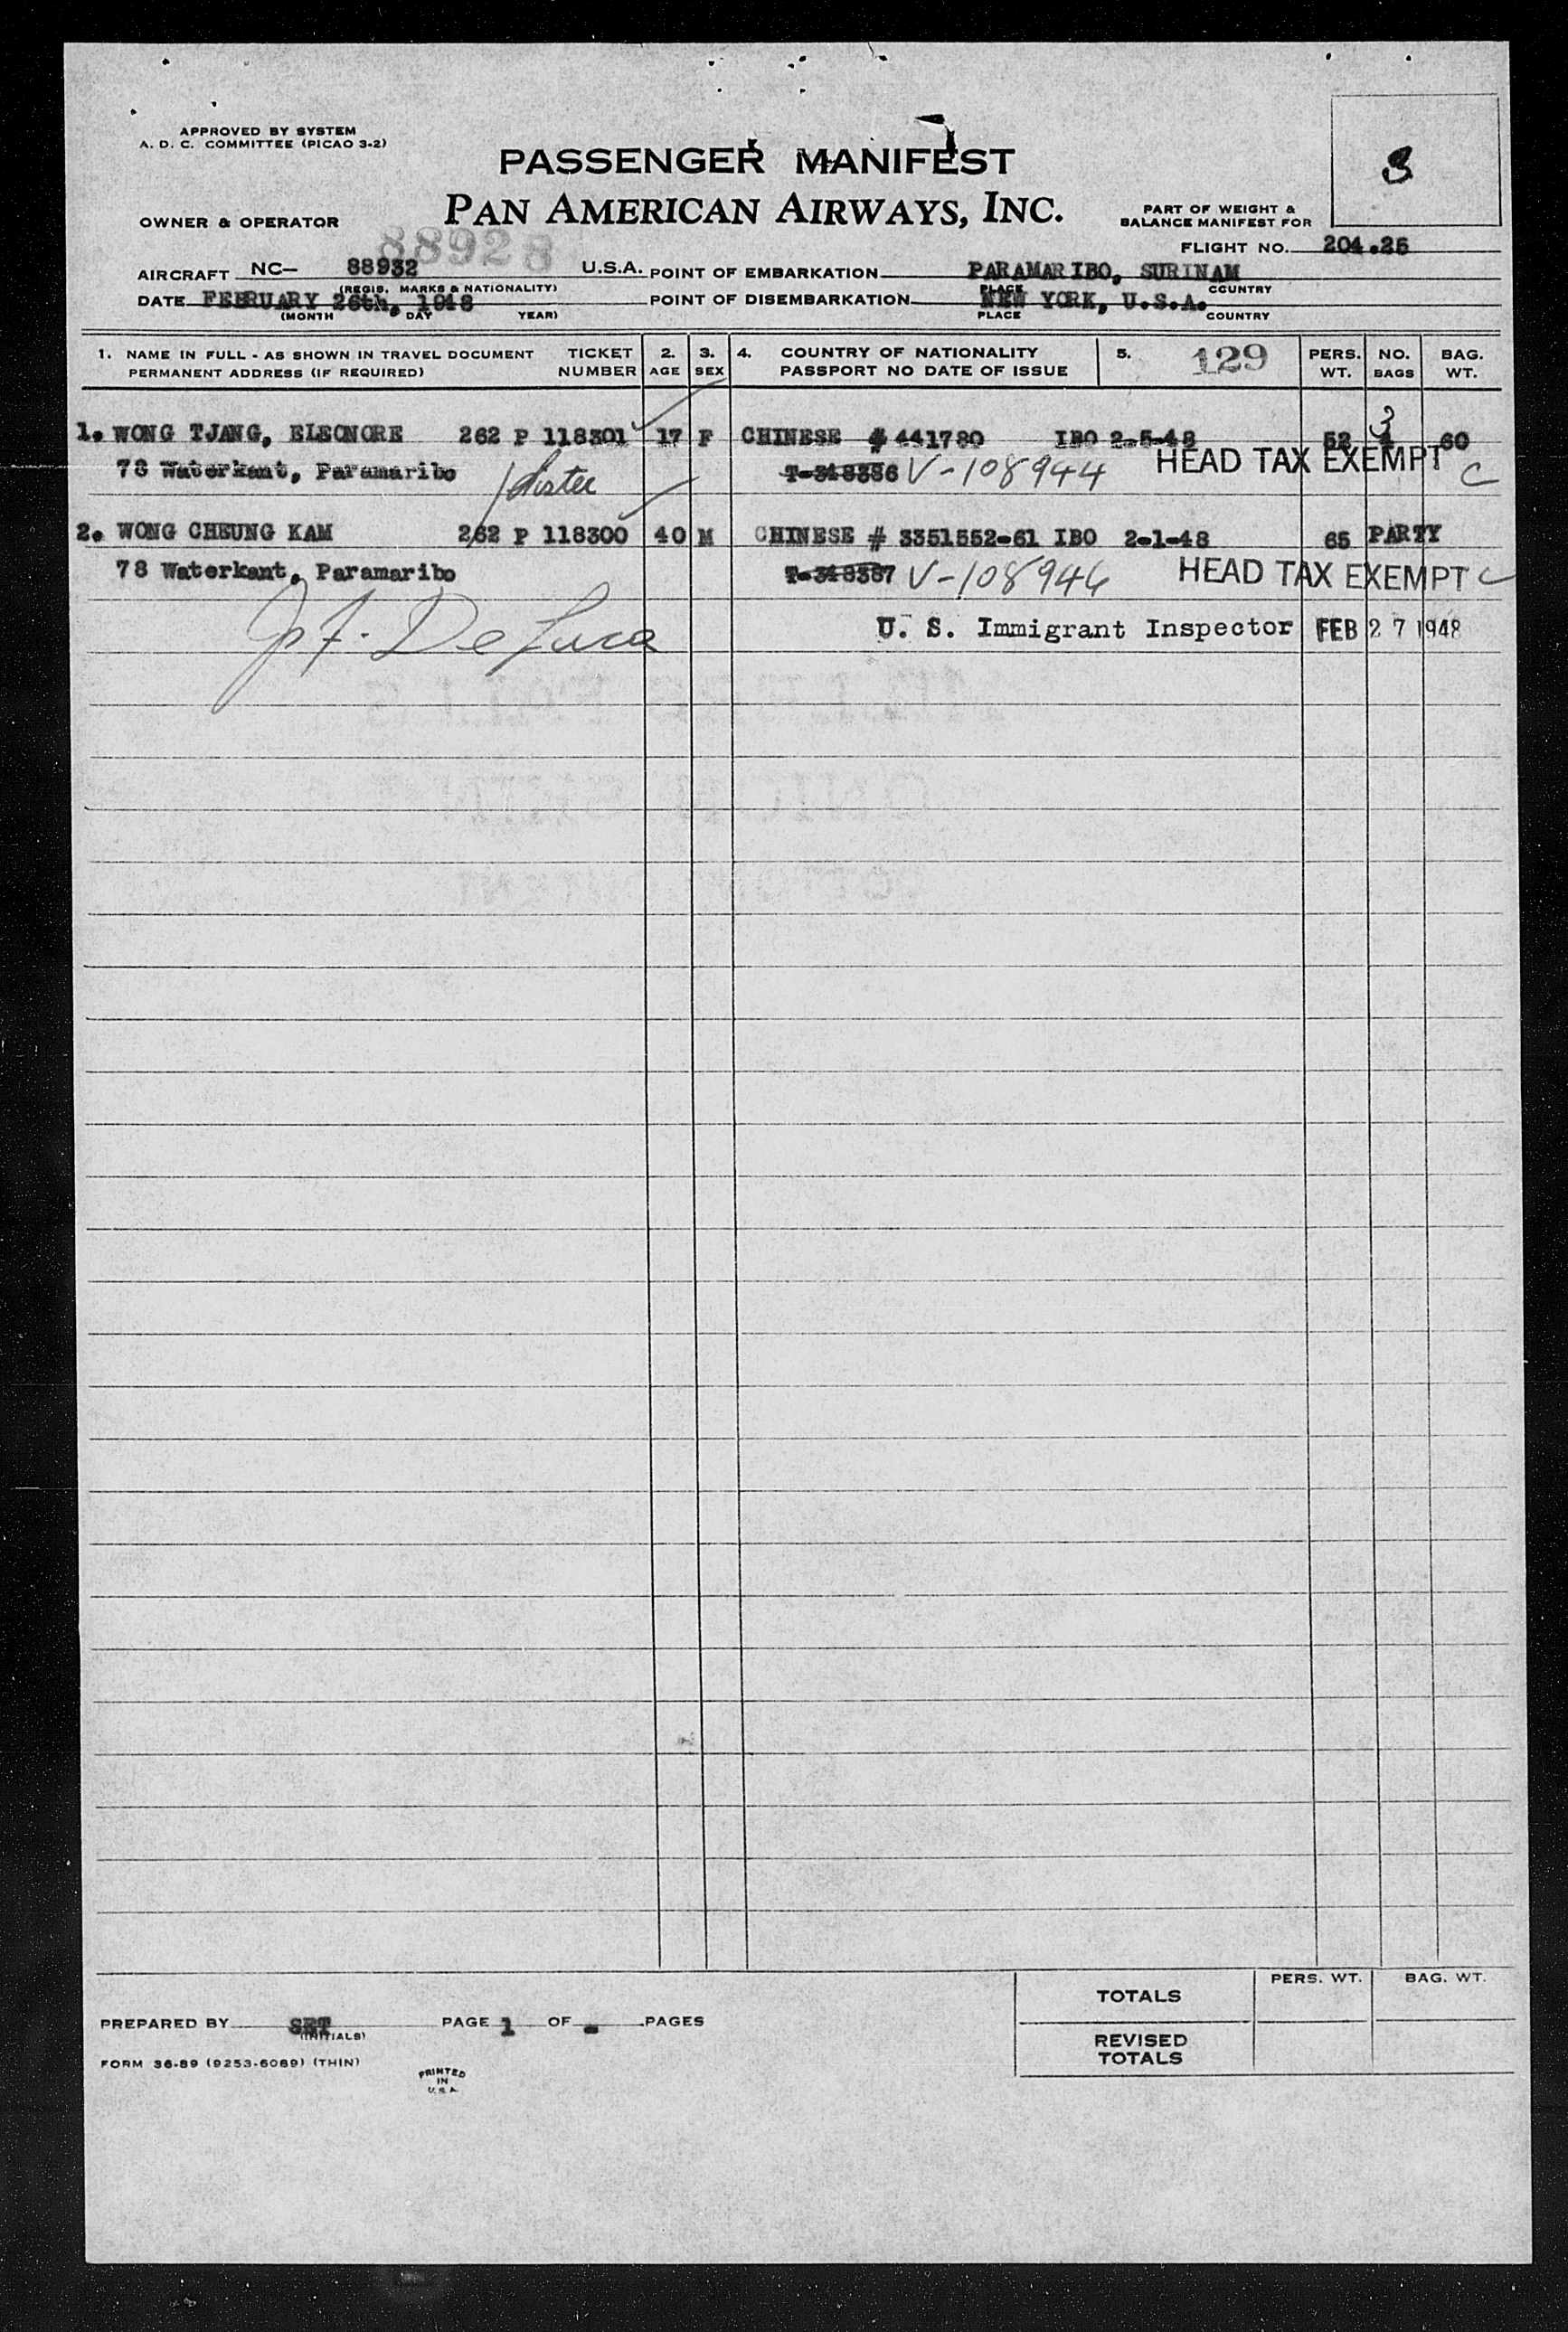 APPROVED BY SYSTEM
A. D. C. COMMITTEE (PICAO 3-2)
3
PASSENGER MANIFEST
PAN AMERICAN AIRWAYS, INC.
OWNER & OPERATOR
PART OF WEIGHT &
BALANCE MANIFEST FOR
88928
FLIGHT NO. 204.26
AIRCRAFT NC- 88932 U.S.A. POINT OF EMBARKATION PARAMARIBO, SURINAM
(REGIS. MARKS & NATIONALITY) PLACE COUNTRY
DATE FEBRUARY 26th, 1948 POINT OF DISEMBARKATION NEW YORK, U.S.A.
(MONTH DAY YEAR) PLACE COUNTRY
1. NAME IN FULL - AS SHOWN IN TRAVEL DOCUMENT TICKET 2. 3. 4. COUNTRY OF NATIONALITY 5. 129 PERS. NO. BAG.
PERMANENT ADDRESS (IF REQUIRED) NUMBER AGE SEX PASSPORT NO DATE OF ISSUE WT. BAGS WT.
3
1. WONG TJANG, ELEONORE 262 P 118301 17 F CHINESE # 441780 IBO 2-5-48 52 4 60
78 Waterkant, Paramaribo T-318386 V-108944 HEAD TAX EXEMPT C
2. WONG CHEUNG KAM 262 P 118300 40 M CHINESE # 3351552-61 IBO 2-1-48 65 PARTY
78 Waterkant, Paramaribo T-318387 V-108946 HEAD TAX EXEMPT C
U. S. Immigrant Inspector FEB 27 1948
De Luca
TOTALS PERS. WT. BAG. WT.
PREPARED BY SRT PAGE 1 OF - PAGES
(INITIALS)
REVISED
TOTALS
FORM 36-89 (9253-6089) (THIN)
PRINTED
IN
U.S.A.